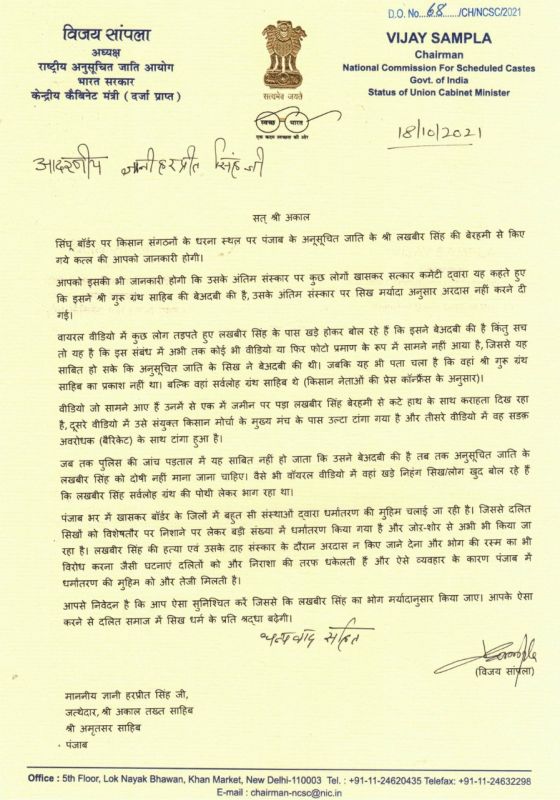 D.O. No. 68 /CH/NCSC/2021
विजय सांपला
अध्यक्ष
राष्ट्रीय अनुसूचित जाति आयोग
भारत सरकार
केन्द्रीय कैबिनेट मंत्री (दर्जा प्राप्त)
सत्यमेव जयते
स्वच्छ भारत
एक कदम स्वच्छता की ओर
VIJAY SAMPLA
Chairman
National Commission For Scheduled Castes
Govt. of India
Status of Union Cabinet Minister
18/10/2021
आदरणीय ज्ञानी हरप्रीत सिंह जी
सत् श्री अकाल
सिंघू बॉर्डर पर किसान संगठनों के धरना स्थल पर पंजाब के अनुसूचित जाति के श्री लखबीर सिंह की बेरहमी से किए
गये कत्ल की आपको जानकारी होगी।
आपको इसकी भी जानकारी होगी कि उसके अंतिम संस्कार पर कुछ लोगों खासकर सत्कार कमेटी द्वारा यह कहते हुए
कि इसने श्री गुरू ग्रंथ साहिब की बेअदबी की है, उसके अंतिम संस्कार पर सिख मर्यादा अनुसार अरदास नहीं करने दी
गई।
वायरल वीडियो में कुछ लोग तड़पते हुए लखबीर सिंह के पास खड़े होकर बोल रहे हैं कि इसने बेअदबी की है किंतु सच
तो यह है कि इस संबंध में अभी तक कोई भी वीडियो या फिर फोटो प्रमाण के रूप में सामने नहीं आया है, जिससे यह
साबित हो सके कि अनुसूचित जाति के सिख ने बेअदबी की थी। जबकि यह भी पता चला है कि वहां श्री गुरू ग्रंथ
साहिब का प्रकाश नहीं था। बल्कि वहां सर्वलोह ग्रंथ साहिब थे (किसान नेताओं की प्रेस कॉन्फ्रैंस के अनुसार)।
वीडीयो जो सामने आए हैं उनमें से एक में जमीन पर पड़ा लखबीर सिंह बेरहमी से कटे हाथ के साथ कराहता दिख रहा
है, दूसरे वीडियो में उसे संयुक्त किसान मोर्चा के मुख्य मंच के पास उल्टा टांगा गया है और तीसरे वीडियो में वह सड़क
अवरोधक (बैरिकेट) के साथ टांगा हुआ है।
जब तक पुलिस की जांच पड़ताल में यह साबित नहीं हो जाता कि उसने बेअदबी की है तब तक अनुसूचित जाति के
लखबीर सिंह को दोषी नहीं माना जाना चाहिए। वैसे भी वॉयरल वीडियो में वहां खड़े निहंग सिख/लोग खुद बोल रहे हैं
कि लखबीर सिंह सर्वलोह ग्रंथ की पोथी लेकर भाग रहा था।
पंजाब भर में खासकर बॉर्डर के जिलों में बहुत सी संस्थाओं द्वारा धर्मातरण की मुहिम चलाई जा रही है। जिससे दलित
सिखों को विशेषतौर पर निशाने पर लेकर बड़ी संख्या में धर्मातरण किया गया है और जोर-शोर से अभी भी किया जा
रहा है। लखबीर सिंह की हत्या एवं उसके दाह संस्कार के दौरान अरदास न किए जाने देना और भोग की रस्म का भी
विरोध करना जैसी घटनाएं दलितों को और निराशा की तरफ धकेलती हैं और ऐसे व्यवहार के कारण पंजाब में
धर्मातरण की मुहिम को और तेजी मिलती है।
आपसे निवेदन है कि आप ऐसा सुनिश्चित करें जिससे कि लखबीर सिंह का भोग मर्यादानुसार किया जाए। आपके ऐसा
करने से दलित समाज में सिख धर्म के प्रति श्रद्धा बढ़ेगी।
धन्यवाद सहित
(विजय सांपला)
माननीय ज्ञानी हरप्रीत सिंह जी,
जत्थेदार, श्री अकाल तख्त साहिब
श्री अमृतसर साहिब
पंजाब
Office : 5th Floor, Lok Nayak Bhawan, Khan Market, New Delhi-110003 Tel. : +91-11-24620435 Telefax: +91-11-24632298
E-mail : chairman-ncsc@nic.in